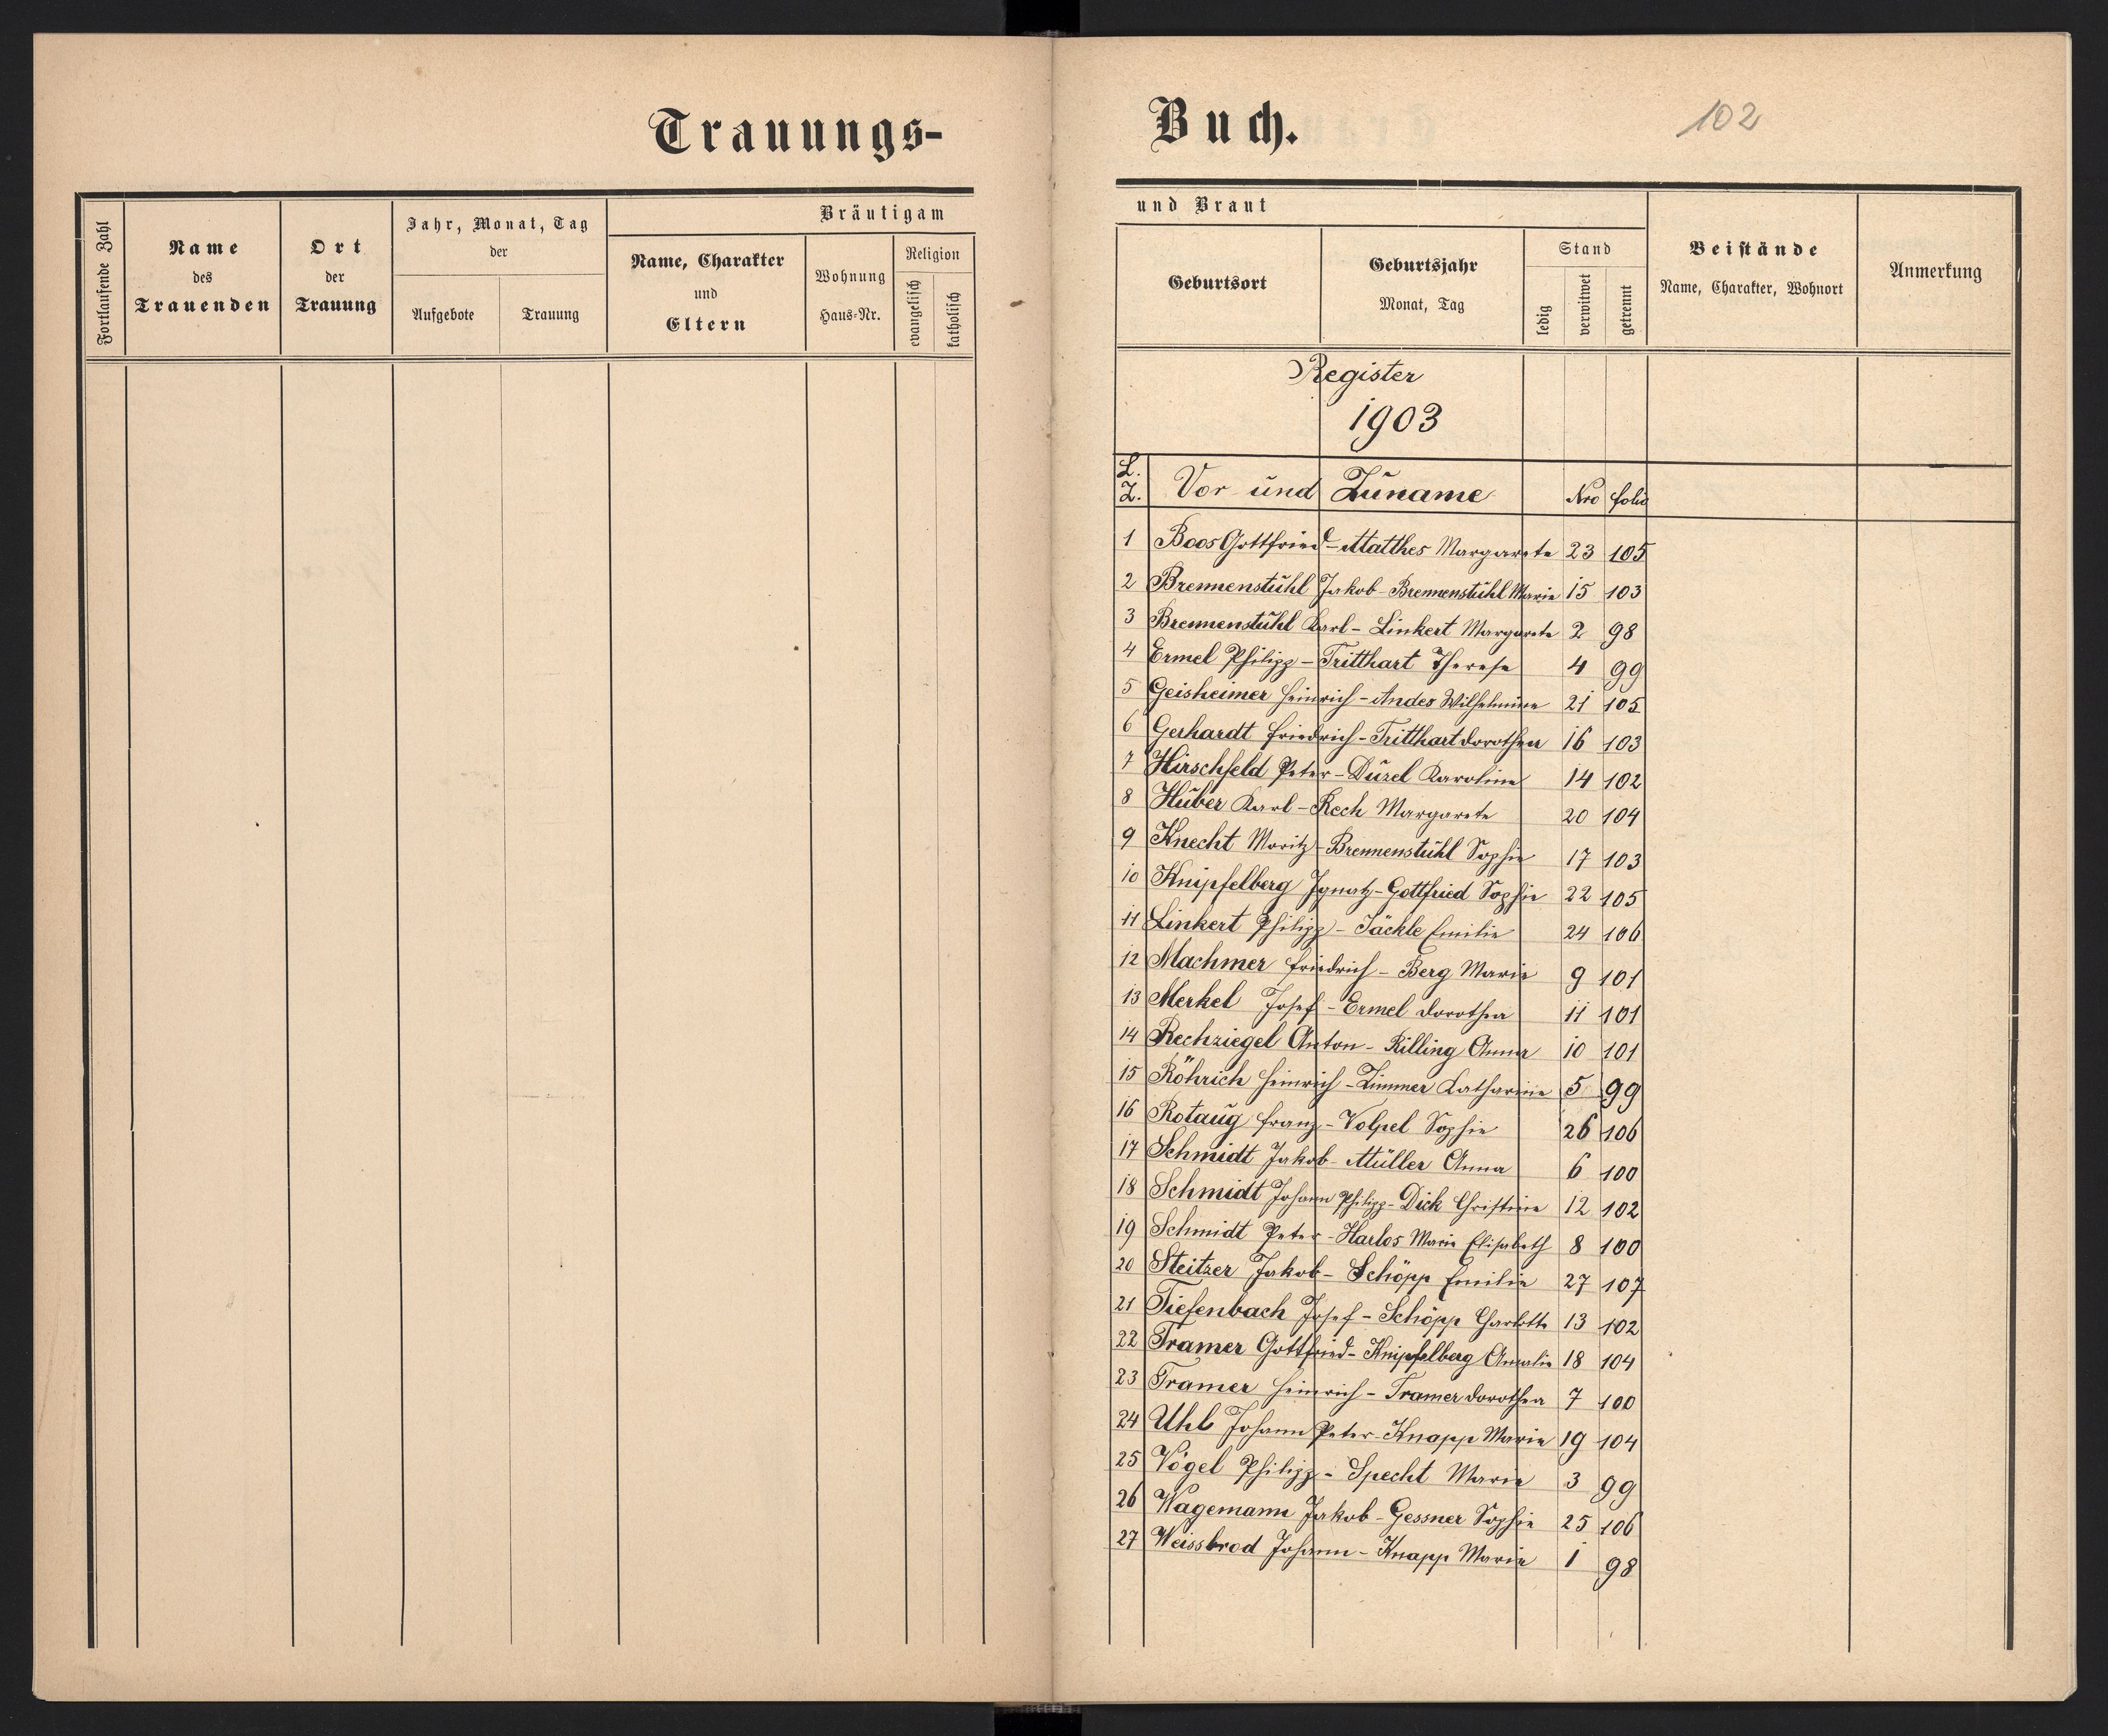 Trauungs-
Fortlaufende Zahl
Name
des
Trauenden
Ort
der
Trauung
Jahr, Monat, Tag
der
Aufgebote
Trauung
Bräutigam
Name, Charakter
und
Eltern
Wohnung
Haus-Nr.
Religion
evangelisch
katholisch
Buch.
102
und Braut
Geburtsort
Geburtsjahr
Monat, Tag
Stand
ledig
verwitwet
getrennt
Beistände
Name, Charakter, Wohnort
Anmerkung
Register
1903
L. Z. Vor und Zuname Nro folio
1 Boos Gottfried - Matthes Margarete 23 105
2 Brennenstuhl Jakob - Brennenstuhl Marie 15 103
3 Brennenstuhl Karl - Linkert Margarete 2 98
4 Ermel Philipp - Tritthart Therese 4 99
5 Geisheimer Heinrich - Andes Wilhelmine 21 105
6 Gerhardt Friedrich - Tritthart Dorothea 16 103
7 Hirschfeld Peter - Duzel Karoline 14 102
8 Huber Karl - Rech Margarete 20 104
9 Knecht Moritz - Brennenstuhl Sophie 17 103
10 Knipfelberg Ignatz - Gottfried Sophie 22 105
11 Linkert Philipp - Jäckle Emilie 24 106
12 Machmer Friedrich - Berg Marie 9 101
13 Merkel Josef - Ermel Dorothea 11 101
14 Rechziegel Anton - Rilling Anna 10 101
15 Röhrich Heinrich - Zimmer Katharine 5 99
16 Rotaug Franz - Volpel Sophie 26 106
17 Schmidt Jakob - Müller Anna 6 100
18 Schmidt Johann Philipp - Dick Christine 12 102
19 Schmidt Peter - Harlos Marie Elisabeth 8 100
20 Steitzer Jakob - Schöpp Emilie 27 107
21 Tiefenbach Josef - Schöpp Charlotte 13 102
22 Tramer Gottfried - Knipfelberg Amalie 18 104
23 Tramer Heinrich - Tramer Dorothea 7 100
24 Uhl Johann Peter - Knapp Marie 19 104
25 Vogel Philipp - Specht Marie 3 99
26 Wagemann Jakob - Gessner Sophie 25 106
27 Weissbrod Johann - Knapp Marie 1 98